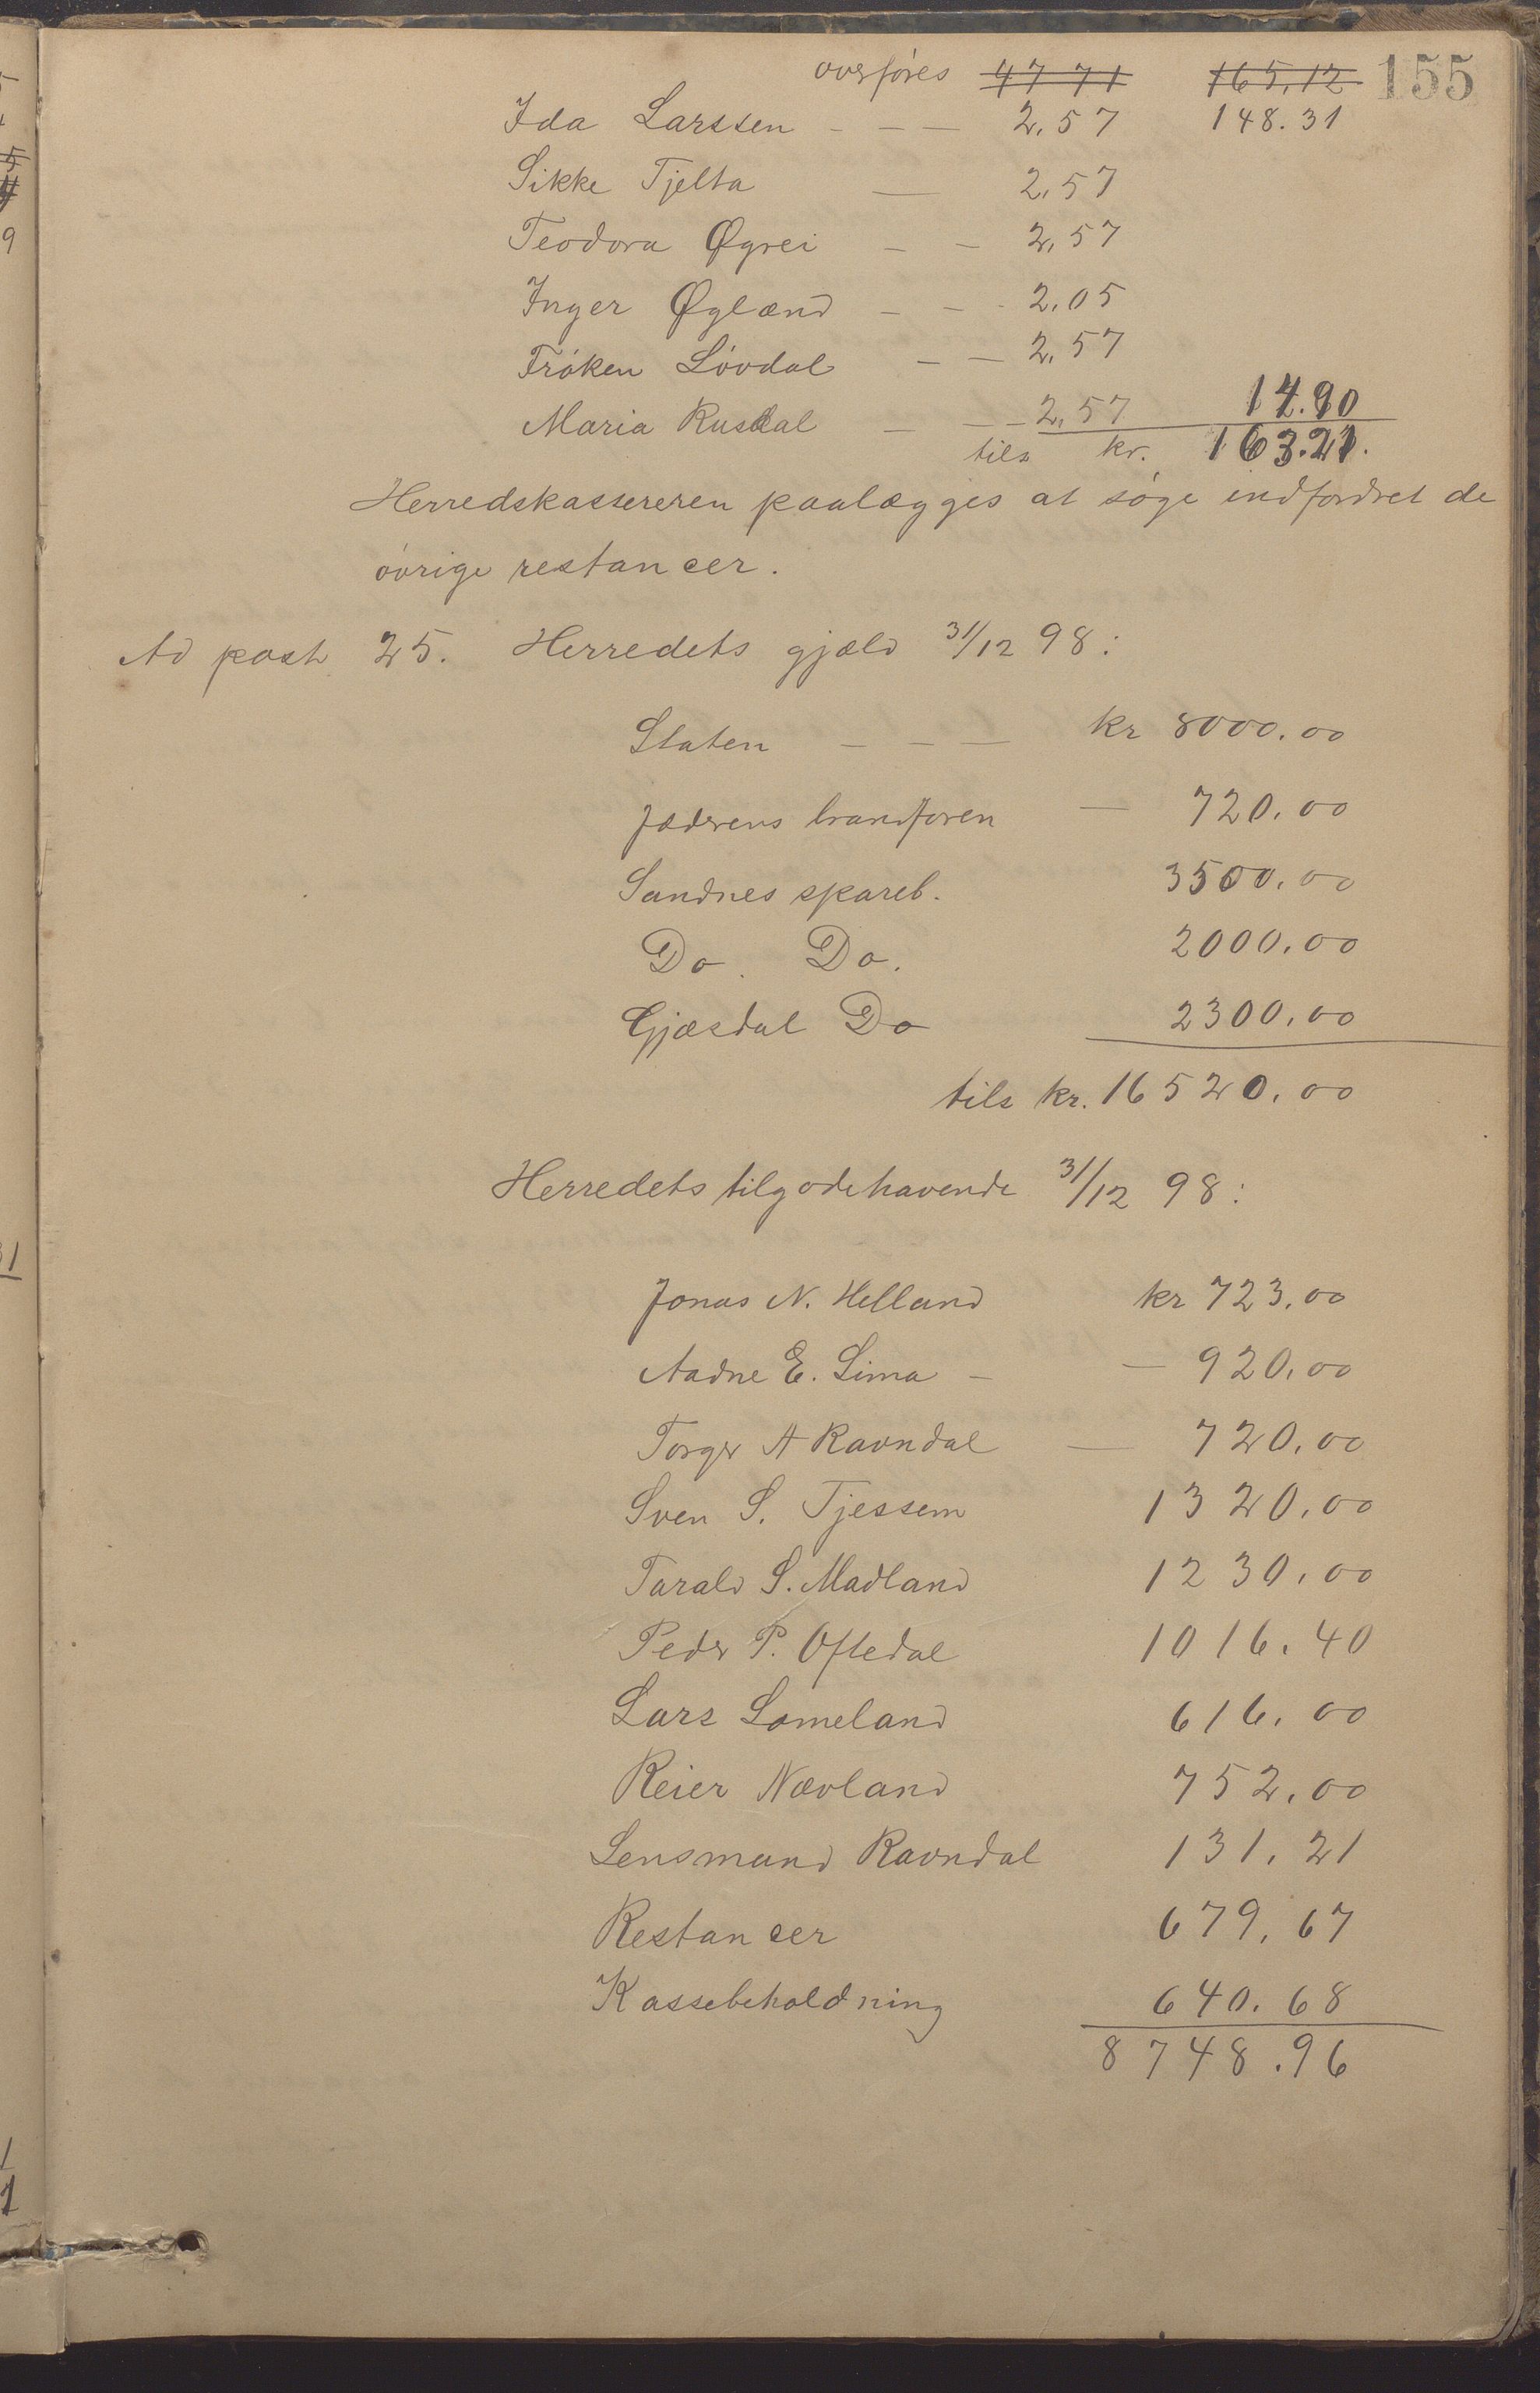 155
overføres 47 71 165,12
Ida Larssen - - - 2,57 148.31
Sikke Tjelta - 2,57
Teodora Øgrei - - 2,57
Inger Øglænd - - - 2,05
Frøken Løvdal - - 2,57
Maria Rusdal - - - 2,57 14.90
tils kr. 163.21.
Herredskassereren paalægges at søge indfordret de
øvrige restancer.
Ad post 25. Herredets gjæld 31/12 98:
Staten - - - kr 8000.00
Jæderens brandforen - 720.00
Sandnes spareb. 3500.00
Do. Do. 2000.00
Gjæsdal Do 2300.00
tils kr. 16520.00
Herredets tilgodehavende 31/12 98:
Jonas N. Helland kr 723.00
Aadne E. Lima - - 920.00
Torger A Ravndal - 720.00
Sven S. Tjessem 1320.00
Tarald S. Madland 1230.00
Peder P. Oftedal 1016.40
Lars Lomeland 616.00
Reier Nævland 752.00
Lensmand Ravndal 131.21
Restancer 679.67
Kassebeholdning 640.68
8748.96